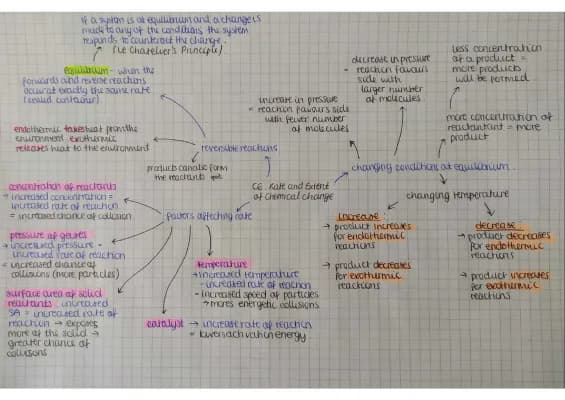 if a system is at equilibrium and a change is
made to any of the conditions the system
responds to counteract the change.
(Le Chatelier's Principle)
equilibrium - when the
forwards and reverse reactions
occur at exactly the same rate
(sealed container)
endothermic takes heat from the
environment. exothermic
releases heat to the environment
reversible reactions
products can also form
the reactants
increase in pressure
= reaction favours side
with fewer number
of molecules
decrease in pressure
- reaction favours
side with
larger number
of molecules
less concentration
of a product =
more products
will be formed
more concentration of
reactant = more
product
changing conditions at equilibrium
C6 Rate and Extent
of Chemical change
concentration of reactants
→ increased concentration =
increased rate of reaction
= increased chance of collision
pressure of gases
→ increased pressure -
increased rate of reaction
= increased chance of
collisions (more particles)
surface area of solid
reactants: increased
SA = increased rate of
reaction → exposes
more of the solid →
greater chance of
collisions
factors affecting rate
temperature
→ increased temperature
- increased rate of reaction
- increased speed of particles
→ more energetic collisions
catalyst → increase rate of reaction
= lowers activation energy
changing temperature
increase:
→ product increases
for endothermic
reactions
→ product decreases
for exothermic
reactions
decrease:
→ product decreases
for endothermic
reactions
→ product increases
for exothermic
reactions